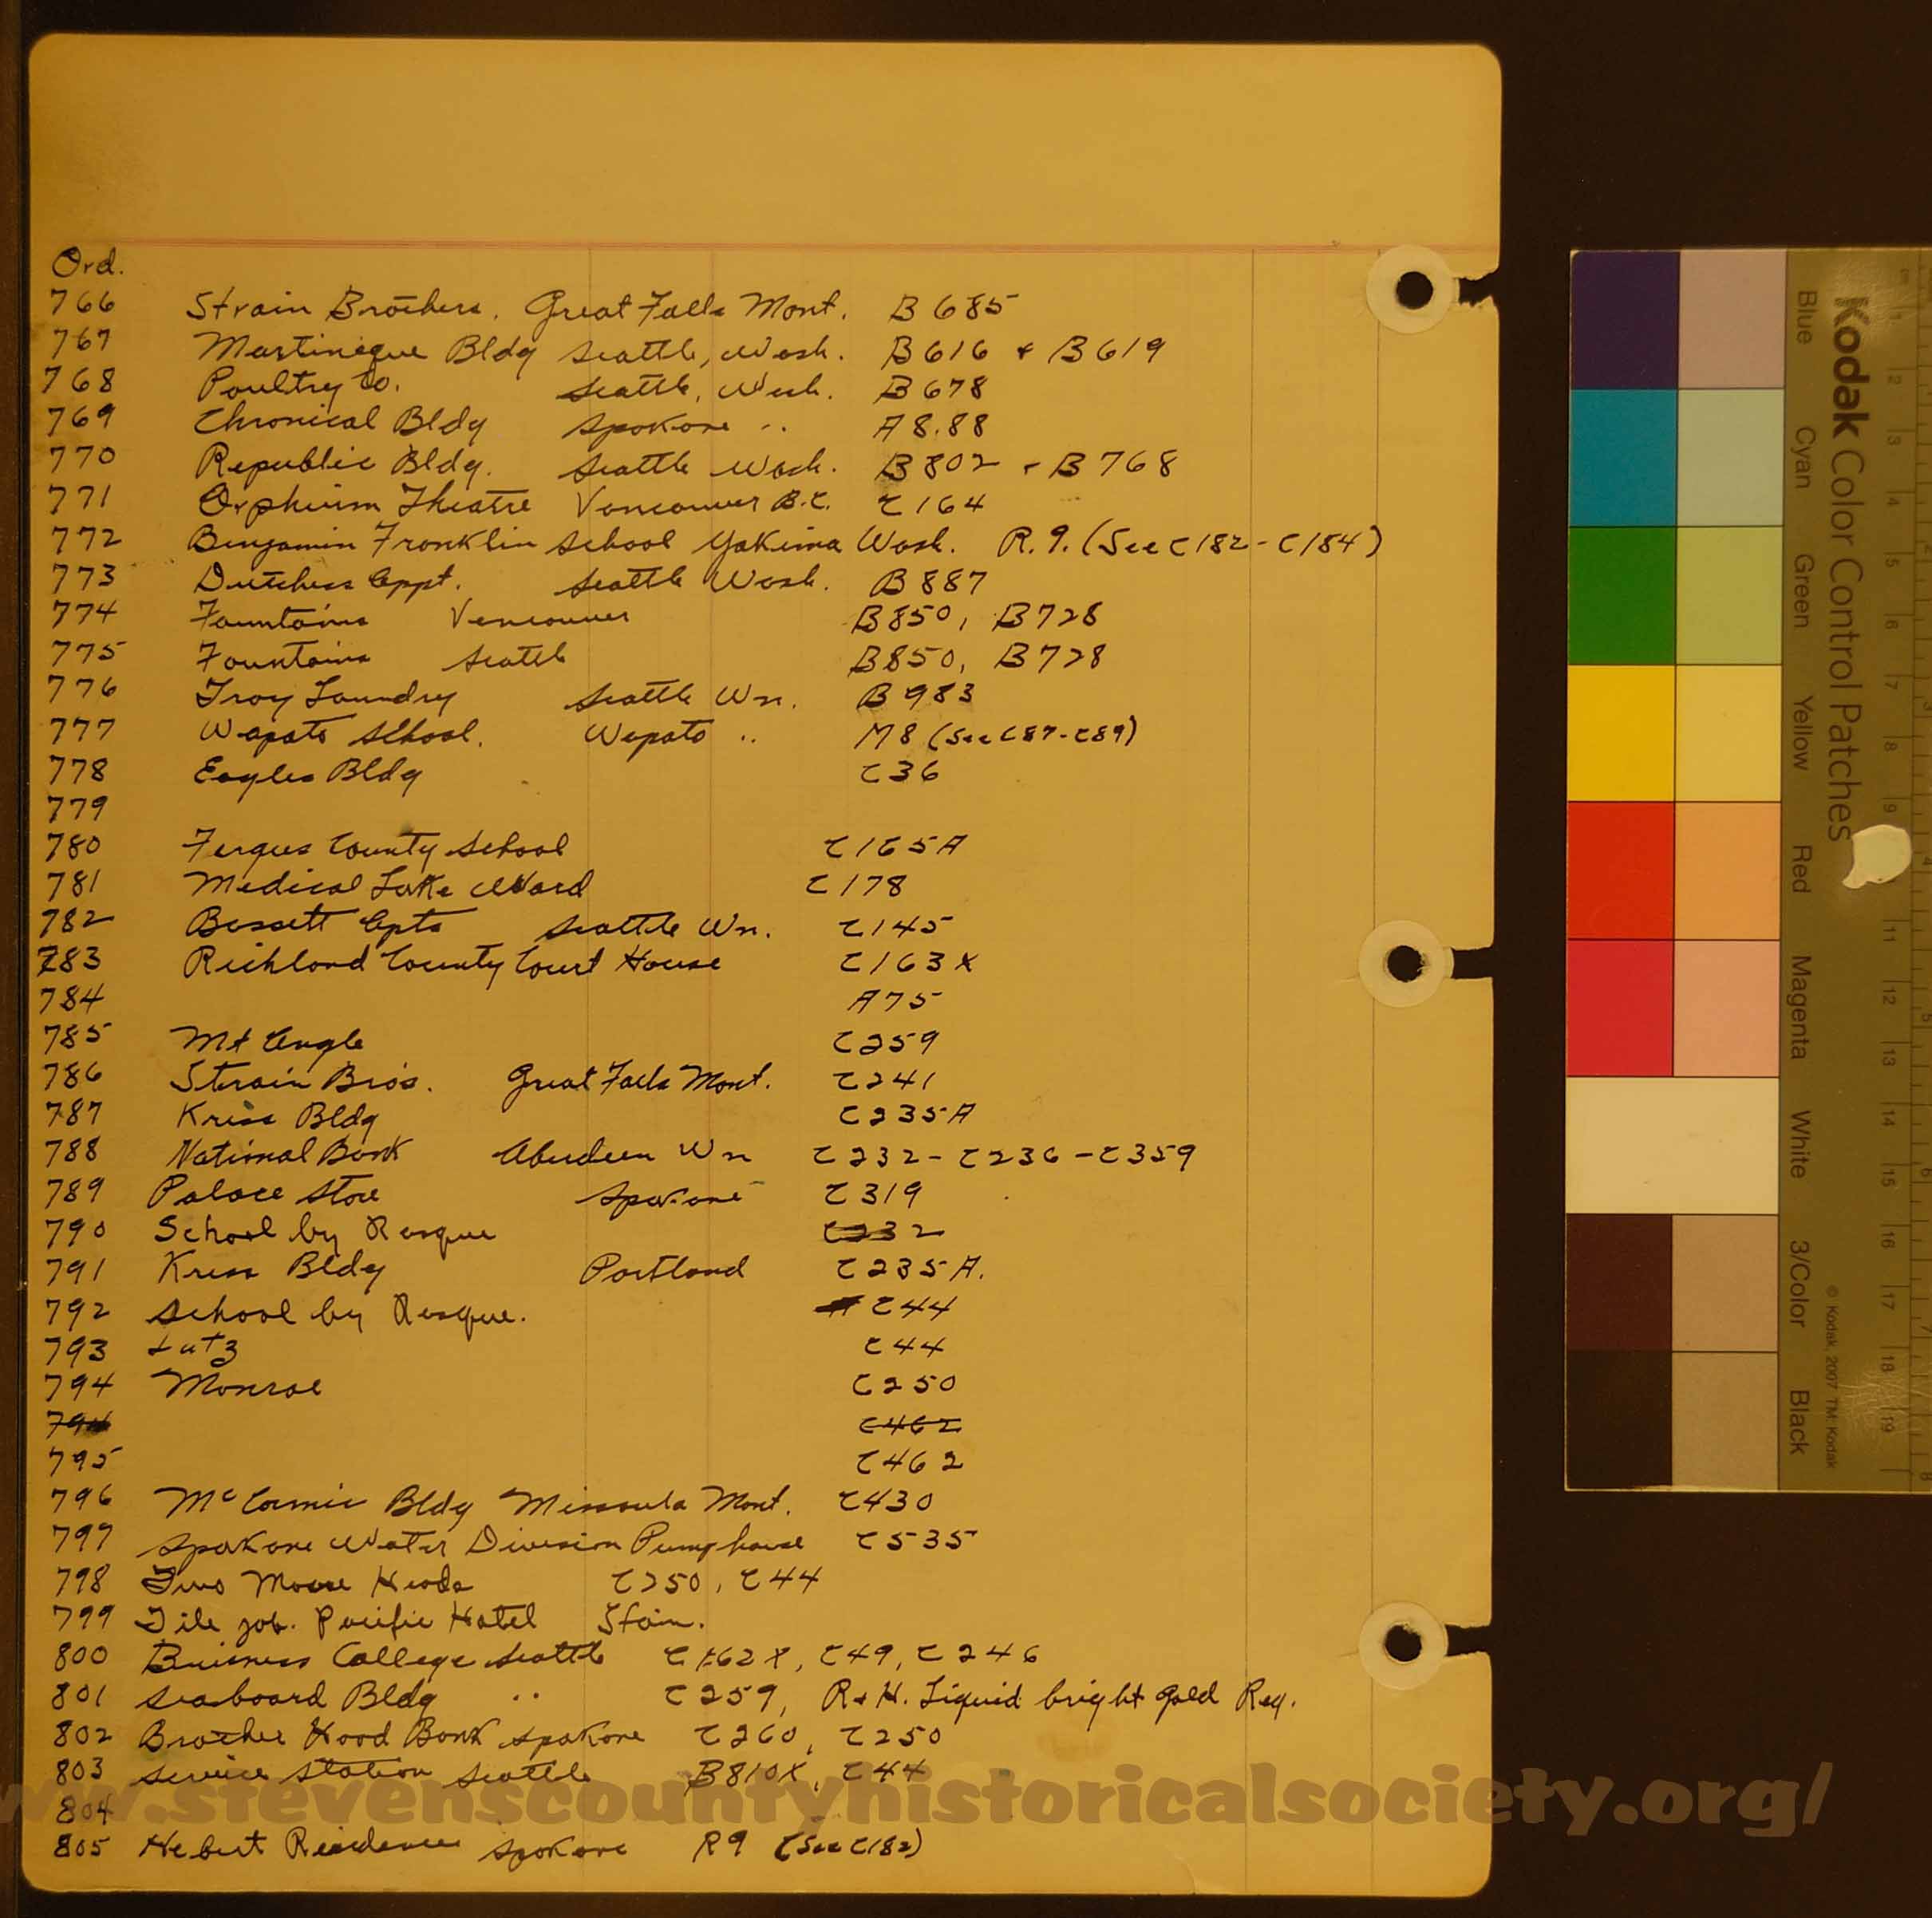 Ord.
766 Strain Brothers. Great Falls Mont. B685
767 Martinique Bldg Seattle, Wash. B616 + B619
768 Poultry Co. Seattle, Wash. B678
769 Chronical Bldg Spokane .. A8.88
770 Republic Bldg. Seattle Wash. B802 + B768
771 Orphium Theatre Vancouver B.C. C164
772 Benjamin Franklin School Yakima Wash. R.9. (See C182 - C184)
773 Dutchess Appt. Seattle Wash. B887
774 Fountains Vancouver B850, B728
775 Fountains Seattle B850, B728
776 Troy Laundry Seattle Wn. B983
777 Wapato School. Wapato .. M8 (See C87-C89)
778 Eagles Bldg C36
779
780 Fergus County School C165A
781 Medical Lake Ward C178
782 Bassett Apts Seattle Wn. C145
783 Richland County Court House C163X
784 A75
785 Mt Angle C259
786 Strain Bro's. Great Falls Mont. C241
787 Kriss Bldg C235A
788 National Bank Aberdeen Wn C232 - C236 - C359
789 Palace Store Spokane C319
790 School by Resque C232
791 Kress Bldg Portland C235A.
792 School by Resque. C44
793 Lutz C44
794 Monroe C250
794 C462
795 C462
796 McCormic Bldg Missoula Mont. C430
797 Spokane Water Division Pumphouse C535
798 Two Moose Heads C250, C44
799 Tile job. Pacific Hotel Stain.
800 Business College Seattle C162X, C49, C246
801 Seaboard Bldg .. C259, R+H. Liquid bright gold Reg.
802 Brother Hood Bank Spokane C260, C250
803 Service Station Seattle B810X, C44
804
805 Hebert Residence Spokane R9 (See C182)
www.stevenscountyhistoricalsociety.org/
Kodak Color Control Patches
Blue Cyan Green Yellow Red Magenta White 3/Color Black
© Kodak, 2007 TM: Kodak